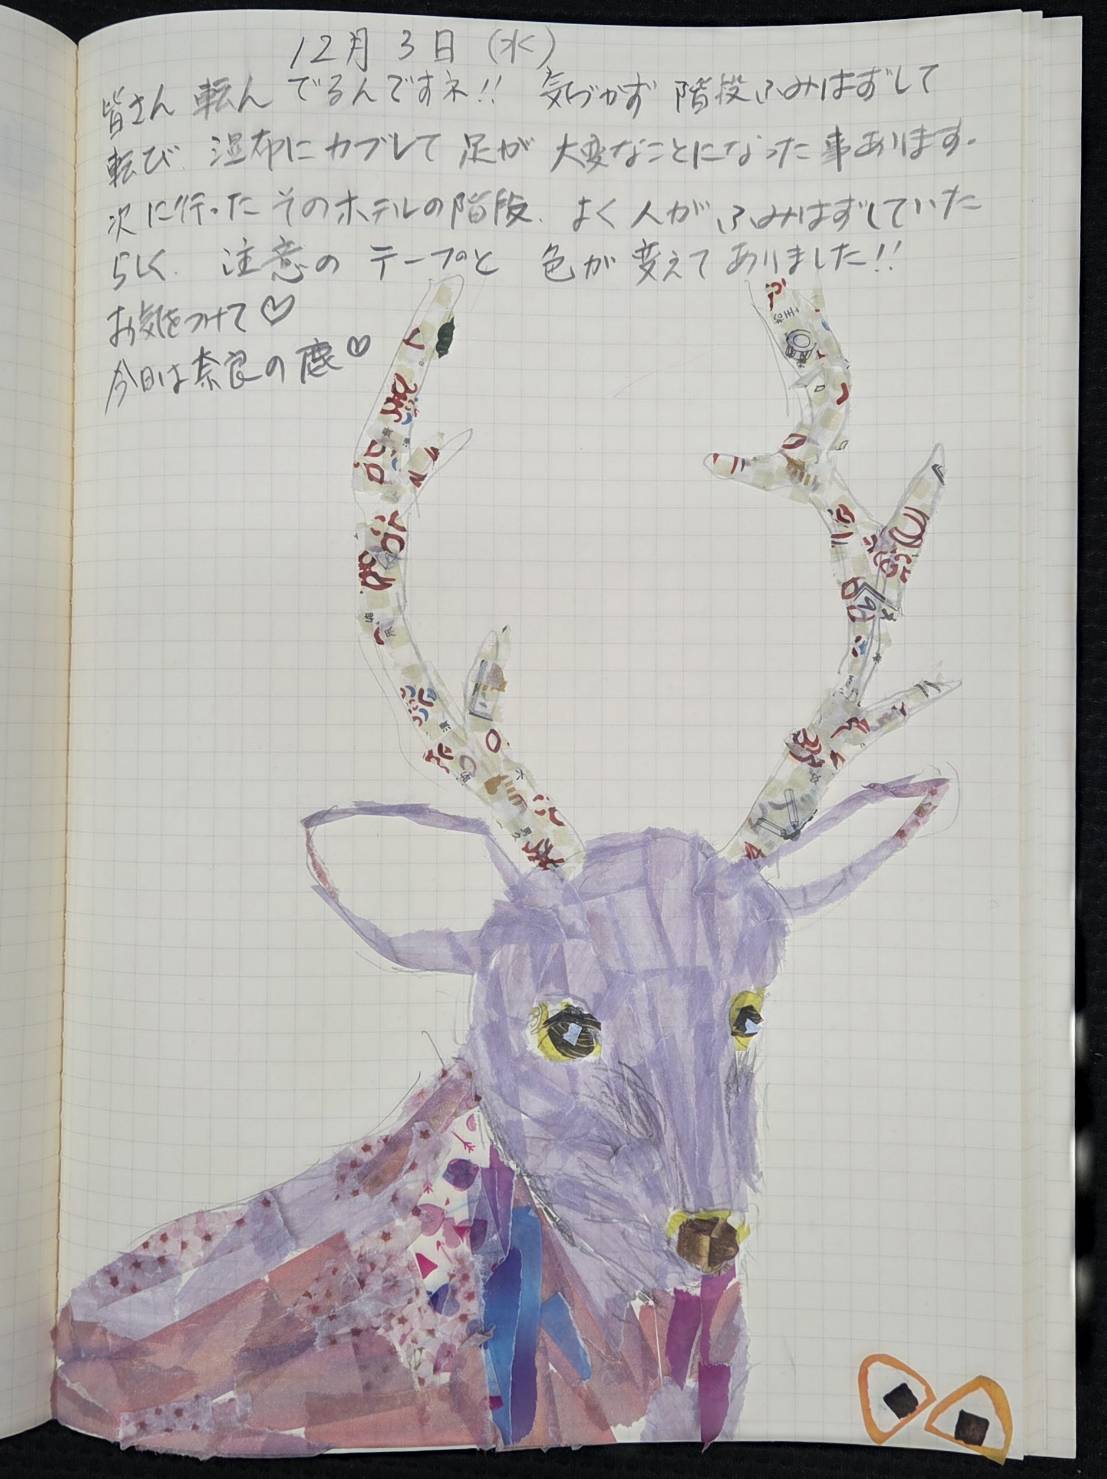 12月3日(水)
皆さん転んでるんですネ!! 気づかず階段ふみはずして
転び、湿布にカブレて足が大変なことになった事あります。
次に行ったそのホテルの階段、よく人がふみはずしていた
らしく、注意のテープと色が変えてありました!!
お気をつけて♡
今日は奈良の鹿♡